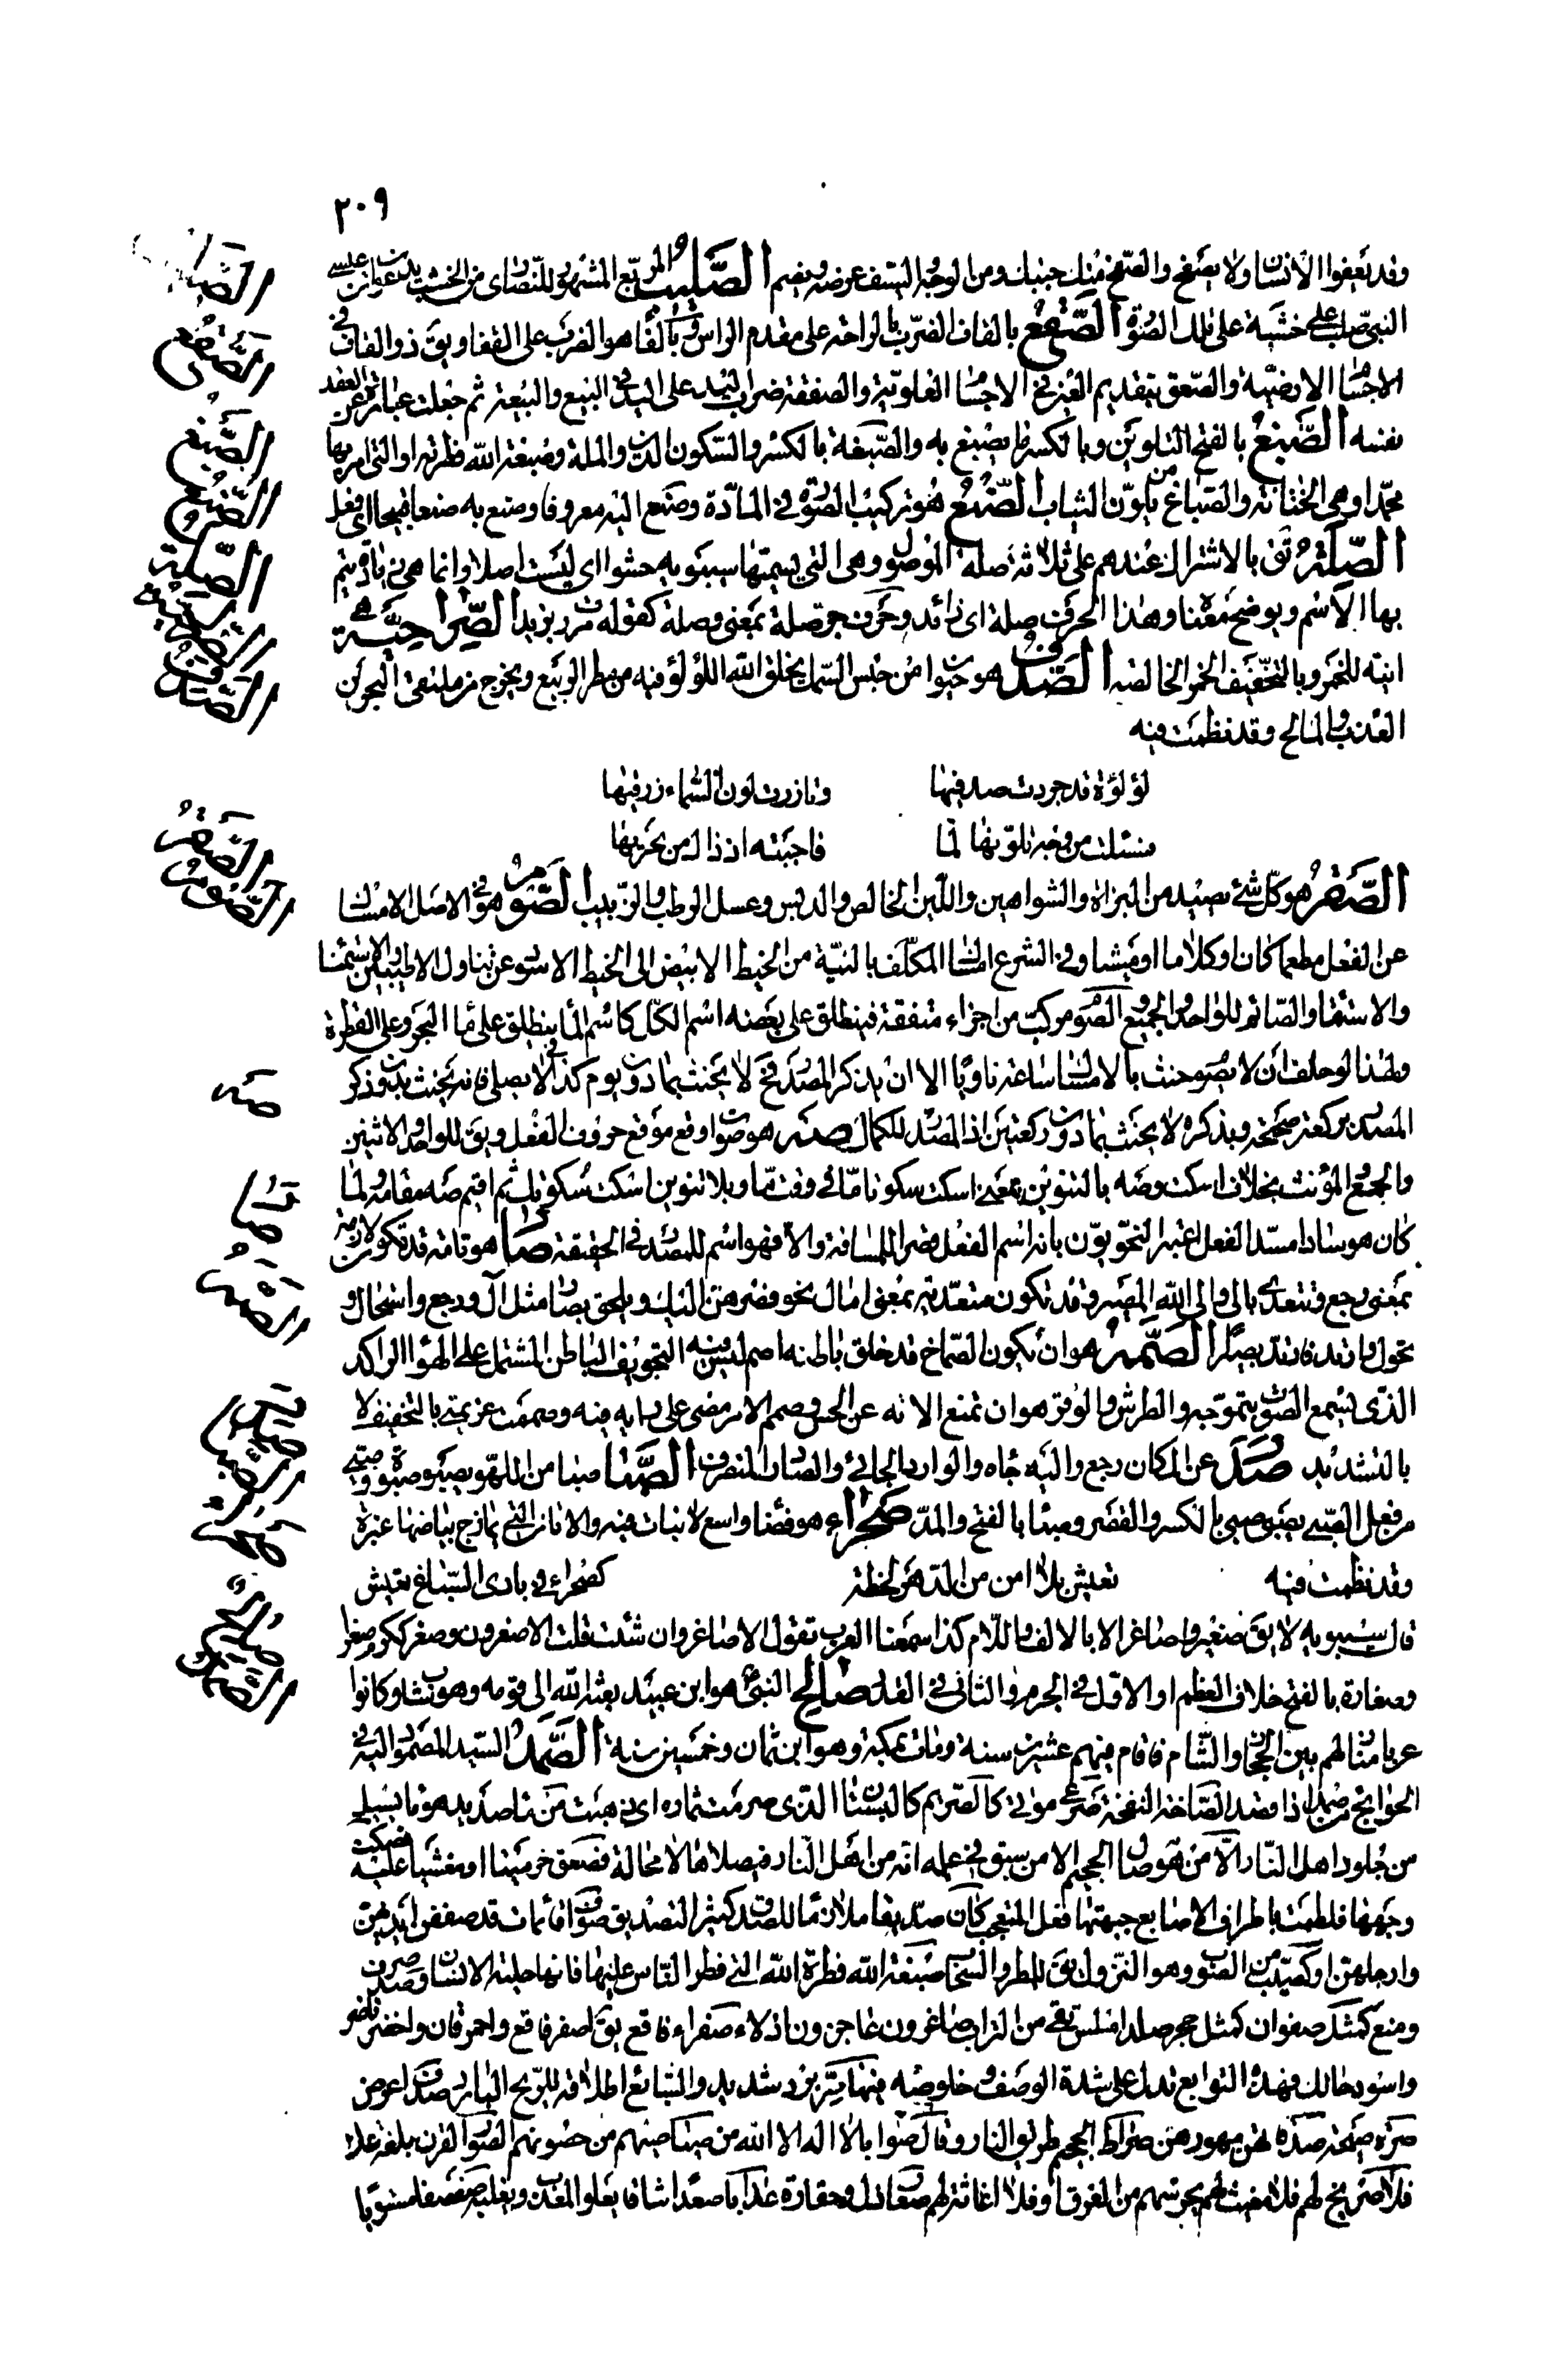 ٢٠٩
وقد يعفوا الانسان ولا يصفح والصفح منك جنبك ومن الوجه السيف عرضه ويضم الصليب المربع المشهور للنصارى من الخشب يدعون ان عيسى
النبي صلب على خشبة على تلك الصورة الصقع بالقاف الضرب بالراحة على مقدم الراس وبالفاء هو الضرب على القفا ويق ذو القاف في
الاجسام الارضية والصعق بتقديم العين في الاجسام العلوية والصفقة ضرب اليد على اليد في البيع والبيعة ثم جعلت عبارة عن العقد
نفسه الصبغ بالفتح التلوين وبالكسر ما يصبغ به والصبغة بالكسر والسكون الدين والملة وصبغة الله فطرته او التي امر بها
محمد او هي الختانة والصباغ من يلون الثياب الصنع هو تركيب الصورة في المادة وصنع اليه معروفا وصنع به صنعا قبيحا اى فعل
الصلة تق بالاشتراك عندهم على ثلاثة صلة الموصول وهي التي يسميها سيبويه حشوا اى ليست اصلا وانما هي زيادة يتم
بها الاسم ويوضح معناه وهذا الحرف صلة اى زائد وحرف جر صلة بمعنى وصلة كقوله مررت بزيد الصراحية هى
انية للخمر وبالتخفيف الخمر الخالصة الصدف هو حيوان من جنس السمك يخلق الله اللؤلؤ فيه من مطر الربيع ويخرج من ملتقى البحرين
العذب والمالح وقد نظمت فيه
لؤلؤة قد جردت صدفيها وما زرت لون السماء زرقيها
فسئلت من وجه تلويها لما فاجبته اذ ذاك من بحريها
الصقر هو كل شئ يصيد من البزاة والشواهين واللبن الخالص والدبس وعسل الرطب والزبيب الصوم هو في الاصل الامساك
عن الفعل مطعما كان او كلاما او مشيا وفي الشرع امساك المكلف بالنية من الخيط الابيض الى الخيط الاسود عن تناول الاطيبين والاستمناء
والاستقاء والصائم للواحد والجميع الصوم مركب من اجزاء متفقة فينطلق على بعضه اسم الكل كاسم الماء ينطلق على ماء البحر وعلى القطرة
ولهذا لو حلف ان لا يصوم حنث بالامساك ساعة ناويا الا ان يذكر المصدر فح لا يحنث بما دون يوم كذا في لا يصلي فانه يحنث بدون ذكر
المصدر بركعة صحيحة وبذكره لا يحنث بما دون ركعتين اذ المصدر للكمال صه هو صوت اوقع موقع حروف الفعل ويق للواحد والاثنين
والجمع والمؤنث بخلاف اسكت وصه بالتنوين بمعنى اسكت سكوتا ما في وقت ما وبلا تنوين اسكت سكوتك ثم اقيم صه مقامه ولما
كان هو سادا مسد الفعل اعتبر النحويون بانه اسم الفعل قصر اللمسافة والا فهو اسم للمصدر في الحقيقة صار هو تامة قد تكون لازمة
بمعنى رجع وتتعدى بالى والى الله المصير وقد تكون متعدية بمعنى امال نحو فصرهن اليك ويلحق بصار مثل آل ورجع واستحال و
تحول وارتد فارتد بصيرا الصمم هو ان يكون الصماخ قد خلق باطنه اصم ليس فيه التجويف الباطن المشتمل على الهواء الراكد
الذي يسمع الصوت بتموجه والطرش والوقر هو ان تمنع الآفة عن الحس وصمم الامر مضى على رايه فيه وصممت عزيمتي بالتخفيف لا
بالتشديد صدر عن المكان رجع واليه جاء والوارد الجائى والصادر المنصرف الصبا صبا من اللهو يصبو صبوة وصبى
من فعل الصبى يصبو صبى بالكسر والقصر وصبا بالفتح والمد صحراء هو فضاء واسع لا نبات فيه والاتان التي يمازج بياضها غبرة
وقد نظمت فيه تعيش بلا امن من الدهر لحظة كصحراء في بادى السباع تعيش
قال سيبويه لا يق صغير واصاغر الا بالالف واللام كذا سمعنا العرب تقول الاصاغر وان شئت قلت الاصغرون وصغر ككرم صغرا
وصغارة بالفتح خلاف العظم او الاول في الجرم والثاني في القدر صالح النبي هو ابن عبيد بعثه الله الى قومه وهو شاب وكانوا
عربا منازلهم بين الحجاز والشام فاقام فيهم عشرين سنة ومات بمكة وهو ابن ثمان وخمسين سنة الصمد السيد المصمود اليه في
الحوائج من صمد اذا قصد الصاخة النفخة صرعى موتى كالصريم كالبستان الذي صرمت ثماره اى ذهبت من ماء صديد هو ما يسيل
من جلود اهل النار الا من هو صال الجحيم الا من سبق في علمه انه من اهل النار فيصلاها لا محالة فصعق خر ميتا او مغشيا عليه فصكت
وجهها فلطمت باطراف الاصابع جبهتها فعل المتعجب كان صديقا ملازما للصدق كثير التصديق صواف قائمات قد صففن ايديهن
وارجلهن او كصيب من الصوب وهو النزول يق للمطر والسحاب صبغة الله فطرة الله التي فطر الناس عليها فانها حلية الانسان وصدف صرف
ومنع كمثل صفوان كمثل حجر صلدا املس نقى من التراب صاغرون عاجزون اذلاء صفراء فاقع يق اصفر فاقع واحمر قان واخضر ناضر
واسود حالك فهذه التوابع تدل على شدة الوصف وخلوصه فيها صر برد شديد والشائع اطلاقه للريح البارد صدف اعرض
صرة صيحة صدقاتهن مهورهن صراط الجحيم طريق النار وقال صوابا لا اله الا الله من صياصيهم من حصونهم الصور القرن بلغة علك
فلا صريخ لهم فلا مغيث لهم يحرسهم من الغرق او فلا اغاثة لهم صغار ذل وحقارة عذابا صعدا شاقا يعلو المعذب ويغلبه صفصفا مستويا
الصقع
الصبغ
الصنع
الصلة
الصراحية
الصدف
الصقر
الصوم
صه
صار
الصمم
صدر
الصبا
صحراء
صالح
الصمد